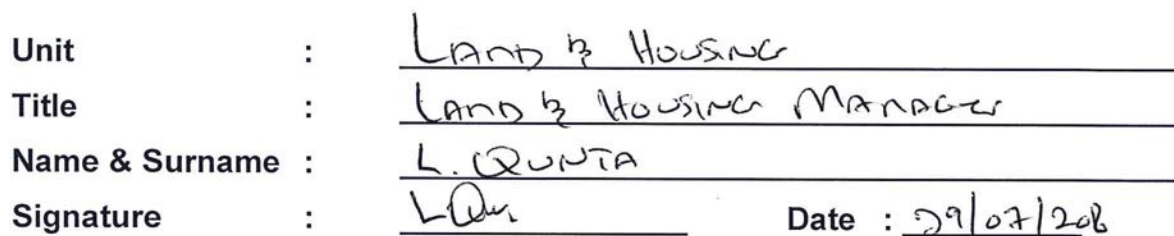 Unit : LAND & HOUSING
Title : LAND & HOUSING MANAGER
Name & Surname : L. QUNTA
Signature : LQu. Date : 29/07/20